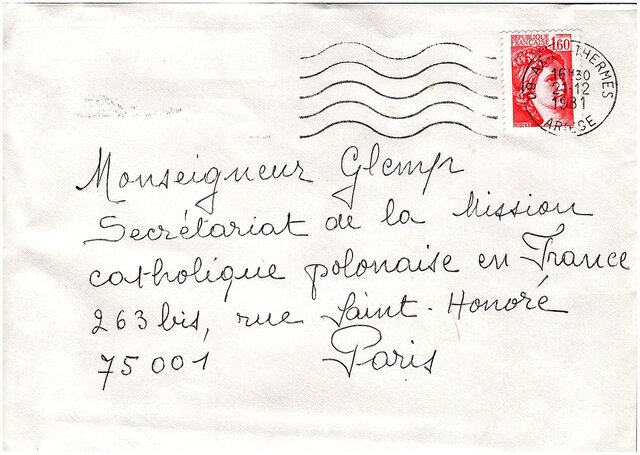 REPUBLIQUE
FRANCAISE 1,60
THERMES
16H30
21-12
1981
ARIEGE
Monseigneur Glemp
Secrétariat de la Mission
catholique polonaise en France
263 bis, rue Saint-Honoré
75001 Paris